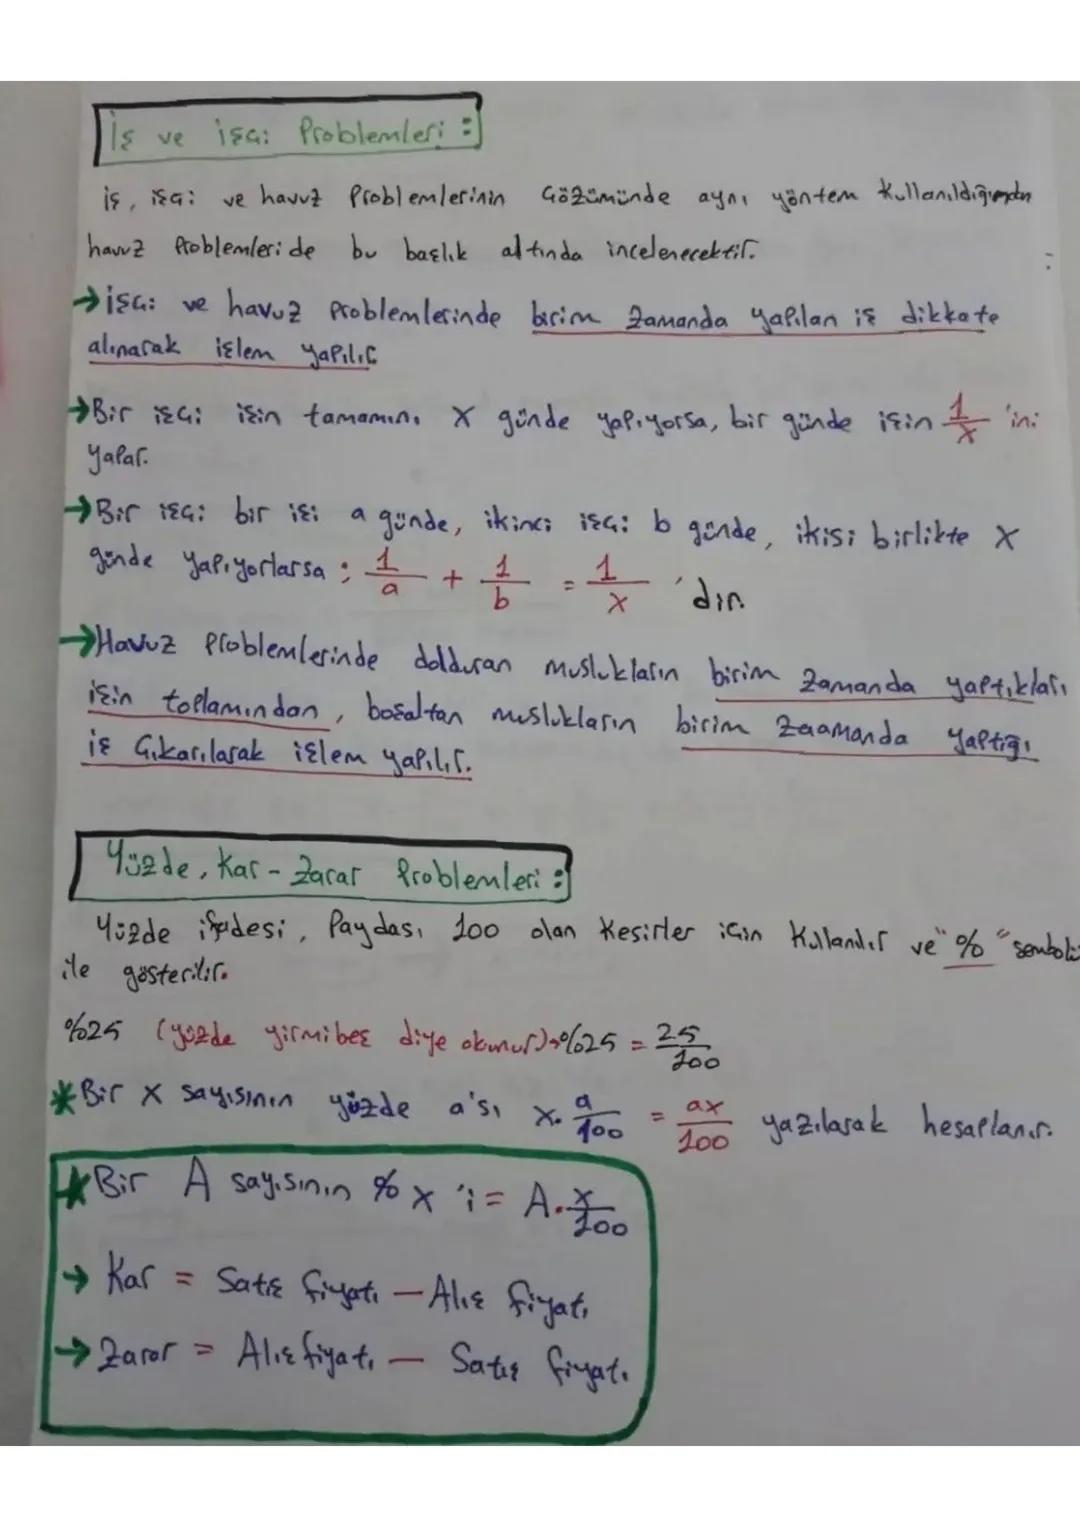 İş ve işçi Problemleri :
iş, işçi ve havuz Problemlerinin çözümünde aynı yöntem kullanıldığından
havuz Problemleri de bu başlık altında incelenecektir.
→ işçi ve havuz Problemlerinde birim zamanda yapılan iş dikkate
alınarak işlem yapılır
→ Bir işçi işin tamamını x günde yapıyorsa, bir günde işin 1/x 'ini
yapar.
→ Bir işçi bir işi a günde, ikinci işçi b günde, ikisi birlikte x
günde yapıyorlarsa ; 1/a + 1/b = 1/x 'dir.
→ Havuz Problemlerinde dolduran muslukların birim zamanda yaptıkları
işin toplamından, boşaltan muslukların birim zaamanda yaptığı
iş çıkarılarak işlem yapılır.
Yüzde, Kar - Zarar Problemleri :
Yüzde ifadesi, Paydası 100 olan Kesirler için Kullanılır ve "%" sembolü
ile gösterilir.
%25 (yüzde yirmibeş diye okunur) → %25 = 25/100
* Bir x sayısının yüzde a'sı x. a/100 = ax/100 yazılarak hesaplanır.
* Bir A sayısının % x 'i = A. x/100
→ Kar = Satış fiyatı — Alış fiyatı
→ Zarar = Alış fiyatı — Satış fiyatı